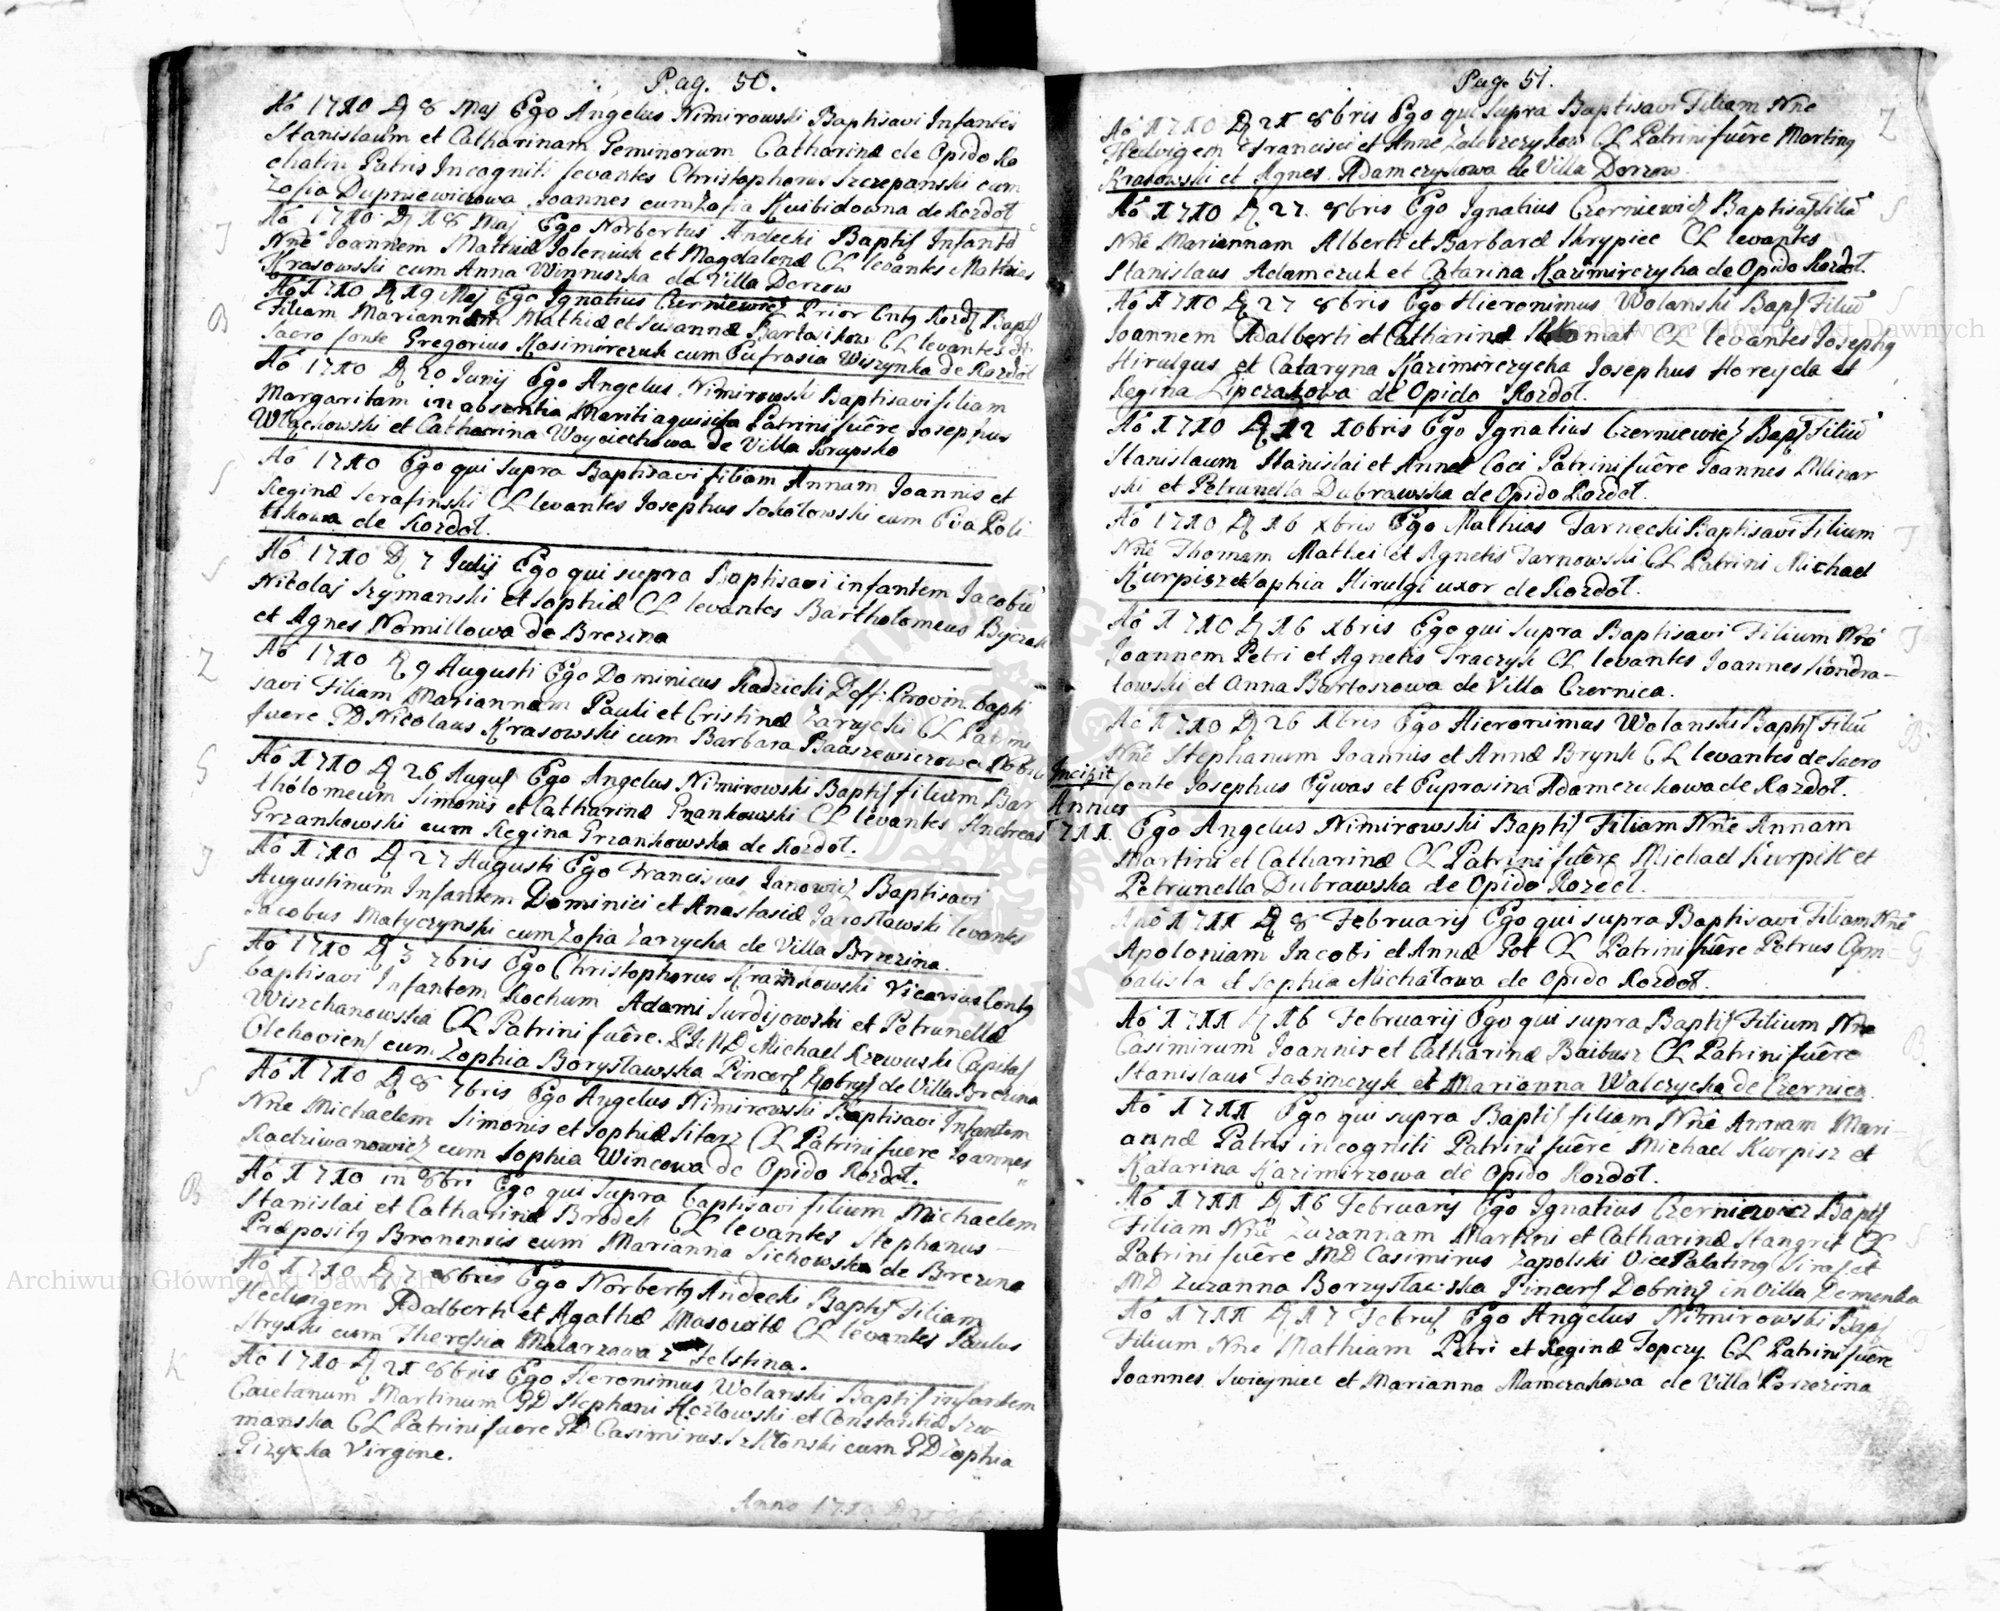 Pag. 50.
Aó 1710 D 8 Maj Ego Angelus Nimirowski Baptisavi Infantes
Stanislaum et Catharinam Geminorum Catharinæ de Opido Ro
chatin Patris Incogniti levantes Christophorus Szczepanski cum
Zofia Dupniewiczowa Joannes cum Zofia Kuibidowna de Rozdoł
J
Aó 1710 D 18 Maj Ego Norbertus Andecki Baptis Infantē
Nnē Joannem Matthiæ Joleniuk et Magdalenæ CL levantes Mathias
Krasowski cum Anna Winniczka de Villa Derzow
B
Aó 1710 D 19 Maj Ego Ignatius Czerniewicz Prior Cntg Rozd Bapts
Filiam Mariannam Mathiæ et Susannæ Bartosikow CL levantes de
Sacro fonte Gregorius Kasimirczuk cum Eufrasia Wiszynka de Rozdół
Aó 1710 D 20 Junij Ego Angelus Nimirowski Baptisavi filiam
Margaritam in absentia Mariti aquisita Patrini fuēre Josephus
Wlackowski et Catharina Woyciechowa de Villa Krupsko
S
Aó 1710 Ego qui supra Baptisavi filiam Annam Joannis et
Reginæ Serafinski CL levantes Josephus Sokołowski cum Eva Koli-
tikowa de Rozdoł.
S
Aó 1710 D 7 Julij Ego qui supra Baptisavi infantem Jacobū
Nicolaj Szymanski et Sophiæ CL levantes Bartholomeus Byczek
et Agnes Nomillowa de Brezina
Z
Aó 1710 D 9 Augusti Ego Dominicus Radzicki Deff: Provin. bapti
savi Filiam Mariannam Pauli et Cristinæ Zarzycki CL Patrini
fuere GD Nicolaus Krasowski cum Barbara
S
Aó 1710 D 26 Augus Ego Angelus Nimirowski Baptis filium Bar
thólomeum Simonis et Catharinæ Grzankowski CL levantes Andreas
Grzankowski cum Regina Grzankowska de Rozdoł.
J
Aó 1710 D 27 Augusti Ego Franciscus Janowicz Baptisavi
Augustinum Infantem Dominici et Anastasiæ Jarosławski levantes
Jacobus Matyczynski cum Zofia Zarzycka de Villa Brzezina.
S
Aó 1710 D 3 7bris Ego Christophorus Kramkowski Vicarius Contg
baptisavi Infantem Rochum Adami Surdijowski et Petrunellæ
Wiszchanowskia CL Patrini fuēre. Michael Rzewuski Capitas
Olchoviens cum Zophia Borysławska Pincers Dobrys de Villa Brezina
S
Aó 1710 D 8 7bris Ego Angelus Nimirowski Baptisavi Infantem
Nne Michaelem Simonis et Sophiæ Sitarz CL Patrini fuere Ioannes
Radziwanowicz cum Sophia Wincowa de Opido Rozdoł.
B
Aó 1710 in 8bri Ego qui supra baptisavi filium Michaelem
Stanislai et Catharinæ Brodek CL levantes Stephanus
Præpositg Bronensis cum Marianna Sichowska de Brezina
Aó 1710 D 7 8bris Ego Norbertg Andecki Baptis Filiam
Hedwigem Adalberti et Agathæ Masowitæ CL levantes Paulus
Stryski cum Theresia Malarzowa z Felstina.
K
Aó 1710 D 21 8bris Ego Heronimus Wolanski Baptis infantem
Caietanum Martinum GD Stephani Kozłowski et Constantiæ Szu-
manska CL Patrini fuere GD Casimirus Szklonski cum GD Zophia
Gizycka Virgine.
Anno 1710 D
Pag. 51.
Aó 1710 D 21 8bris Ego qui supra Baptisavi Filiam Nne
Hedvigem Francisci et Annæ Zaleszczykow CL Patrini fuēre Marting
Krasowski et Agnes Adamczykowa de Villa Derzow
Z
Aó 1710 D 27. 8bris Ego Ignatius Czerniewicz Baptisa Filiā
Nne Mariannam Alberti et Barbaræ Skrypiec CL levantes
Stanislaus Adamczuk et Catarina Kazimirczyka de Opido Rozdoł.
S
Aó 1710 D 27 8bris Ego Hieronimus Wolanski Baps Filiū
Joannem Adalberti et Catharinæ CL levantes Josephg
Hirulgus et Cataryna Kazimirczycha Josephus Horeyda et
Regina Lipczakowa de Opido Rozdoł.
S
Aó 1710 D 12 10bris Ego Ignatius Czerniewicz Baps Filiū
Stanislaum Stanislai et Annæ Coci Patrini fuēre Joannes Mlinar
ski et Petrunella Dubrawska de Opido Rozdoł.
Aó 1710 D 16 xbris Ego Mathias Tarnecki Baptisavi Filium
Nne Thomam Mathei et Agnetis Tarnowski CL Patrini Michael
Kurpisz et Sophia Hirulgi uxor de Rozdoł.
T
Aó 1710 D 16 xbris Ego qui supra Baptisavi Filium Nne
Joannem Petri et Agnetis Traczyk CL levantes Joannes Kondra-
towski et Anna Bartoszowa de Villa Czernica.
T
Aó 1710 D 26 Xbris Ego Hieronimus Wolanski Baptis Filiū
Nnē Stephanum Joannis et Annæ Brynk CL levantes de Sacro
fonte Josephus Pywas et Euprosina Adamczukowa de Rozdoł.
B.
Incipit
Annus
1711.
Ego Angelus Nimirowski Baptis Filiam Nne Annam
Martini et Catharinæ CL Patrini fuēre Michael Kurpisz et
Petrunella Dubrawska de Opido Rozdoł.
Aó 1711 D 8 Februarij Ego qui supra Baptisavi Filiam Nne
Apoloniam Jacobi et Annæ Pot CL Patrini fuēre Petrus Cym-
balista et Sophia Michałowa de Opido Rozdoł.
G
Aó 1711 D 16 Februarij Ego qui supra Baptis Filium Nne
Casimirum Joannis et Catharinæ Baibusz CL Patrini fuēre
Stanislaus Fabinczyk et Marianna Walczycka de Czernica
B.
Aó 1711 Ego qui supra Baptis filiam Nne Annam Mari-
annæ Patris incogniti Patrini fuēre Michael Kurpisz et
Katarina Kazimirzowa de Opido Rozdoł.
K
Aó 1711 D 16 Februarij Ego Ignatius Czerniewicz Baps
Filiam Nne Zuzannam Martini et Catharinæ Stangrit CL
Patrini fuēre MD Casimirus Zapolski Vice Palating Siras et
MD Zuzanna Borzysławska Pincers Dobrins in Villa Demenka
S
Aó 1711 D 17 Februs Ego Angelus Nimirowski Baps
Filium Nne Mathiam Petri et Reginæ Topczy CL Patrini fuēre
Joannes Swieyniec et Marianna Mamczakowa de Villa Brzezina
T
Archiwum Główne Akt Dawnych
Archiwum Główne Akt Dawnych